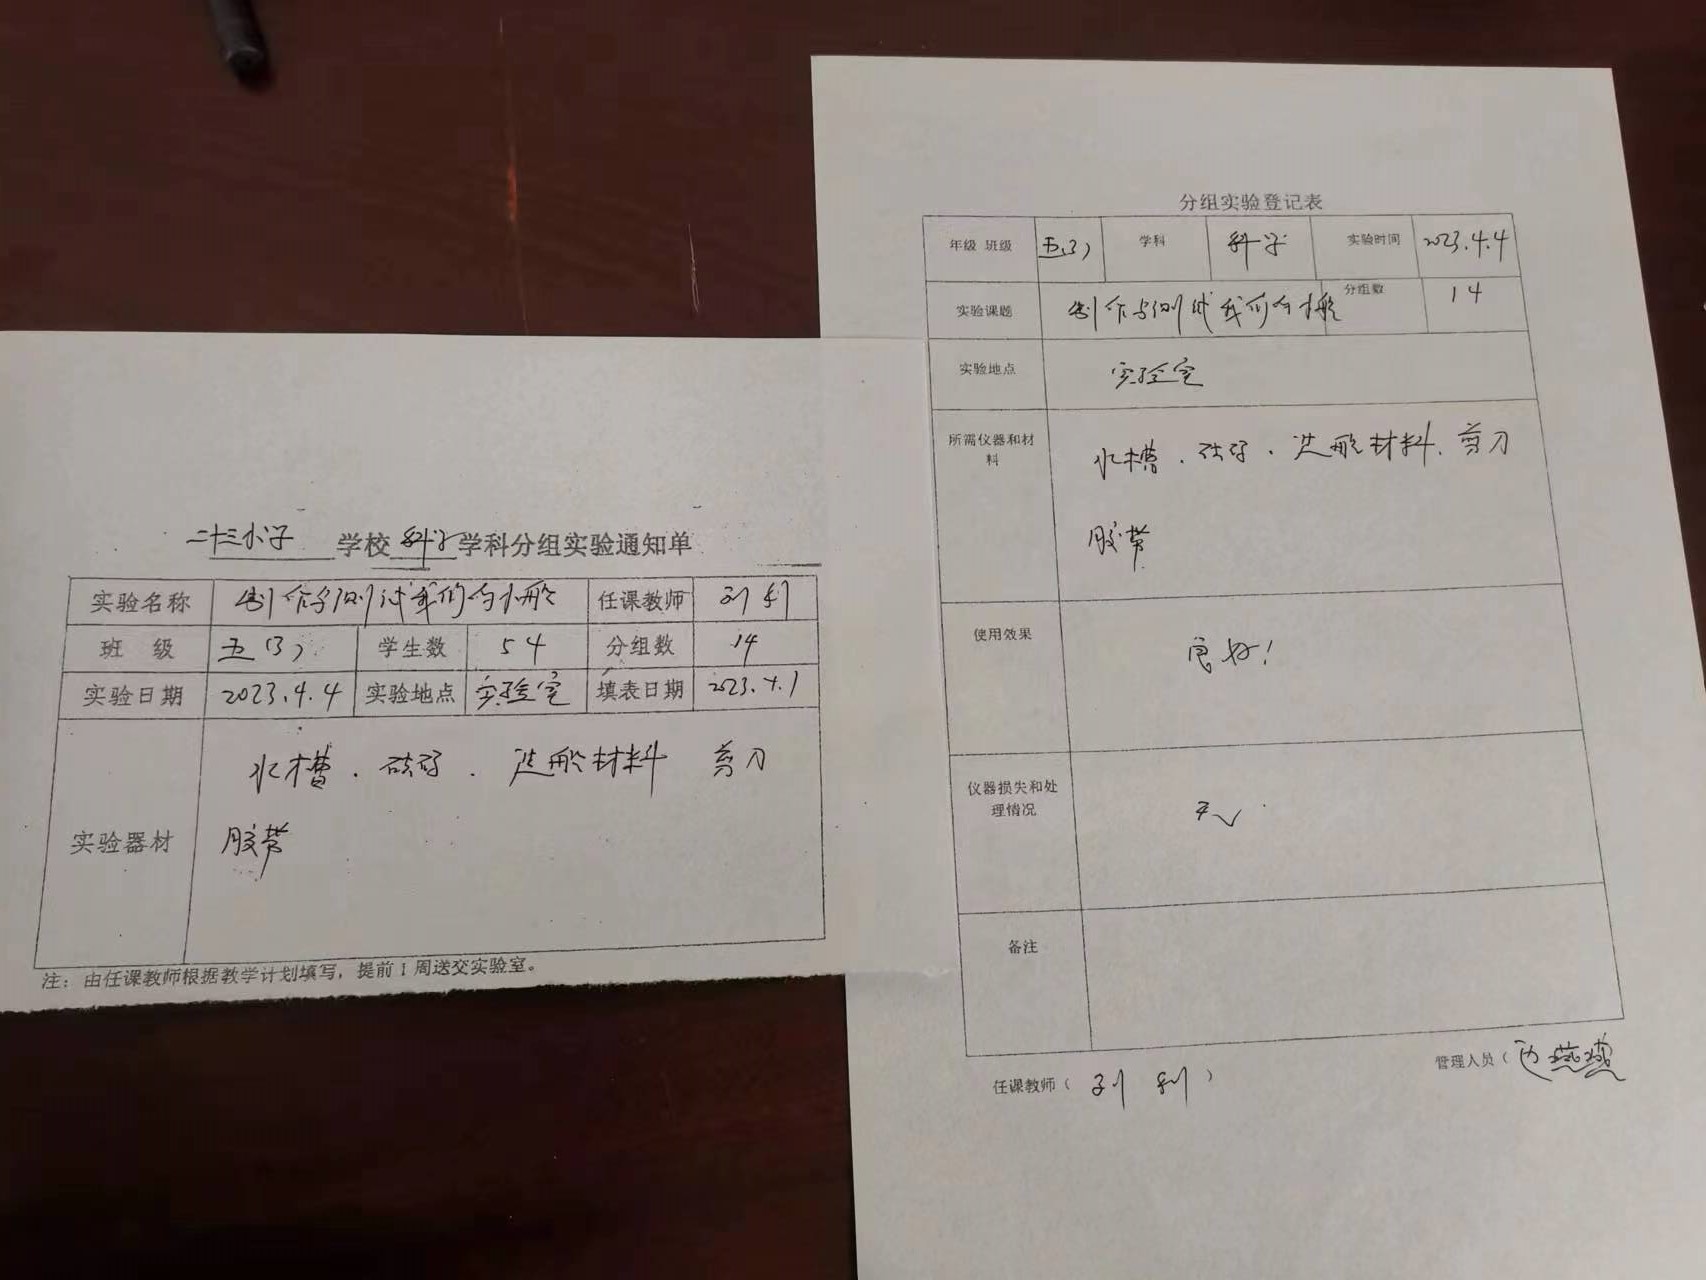 二十三小学 学校 科学 学科分组实验通知单
实验名称 制作与测试我们的小船 任课教师 刘利
班 级 五(3) 学生数 54 分组数 14
实验日期 2023.4.4 实验地点 实验室 填表日期 2023.4.1
实验器材 水槽、砝码、造船材料 剪刀
胶带
注：由任课教师根据教学计划填写，提前1周送交实验室。
分组实验登记表
年级 班级 五(3) 学科 科学 实验时间 2023.4.4
实验课题 制作与测试我们的小船 分组数 14
实验地点 实验室
所需仪器和材
料
水槽、砝码、造船材料、剪刀
胶带
使用效果 良好！
仪器损失和处
理情况
无
备注
任课教师（刘利） 管理人员（